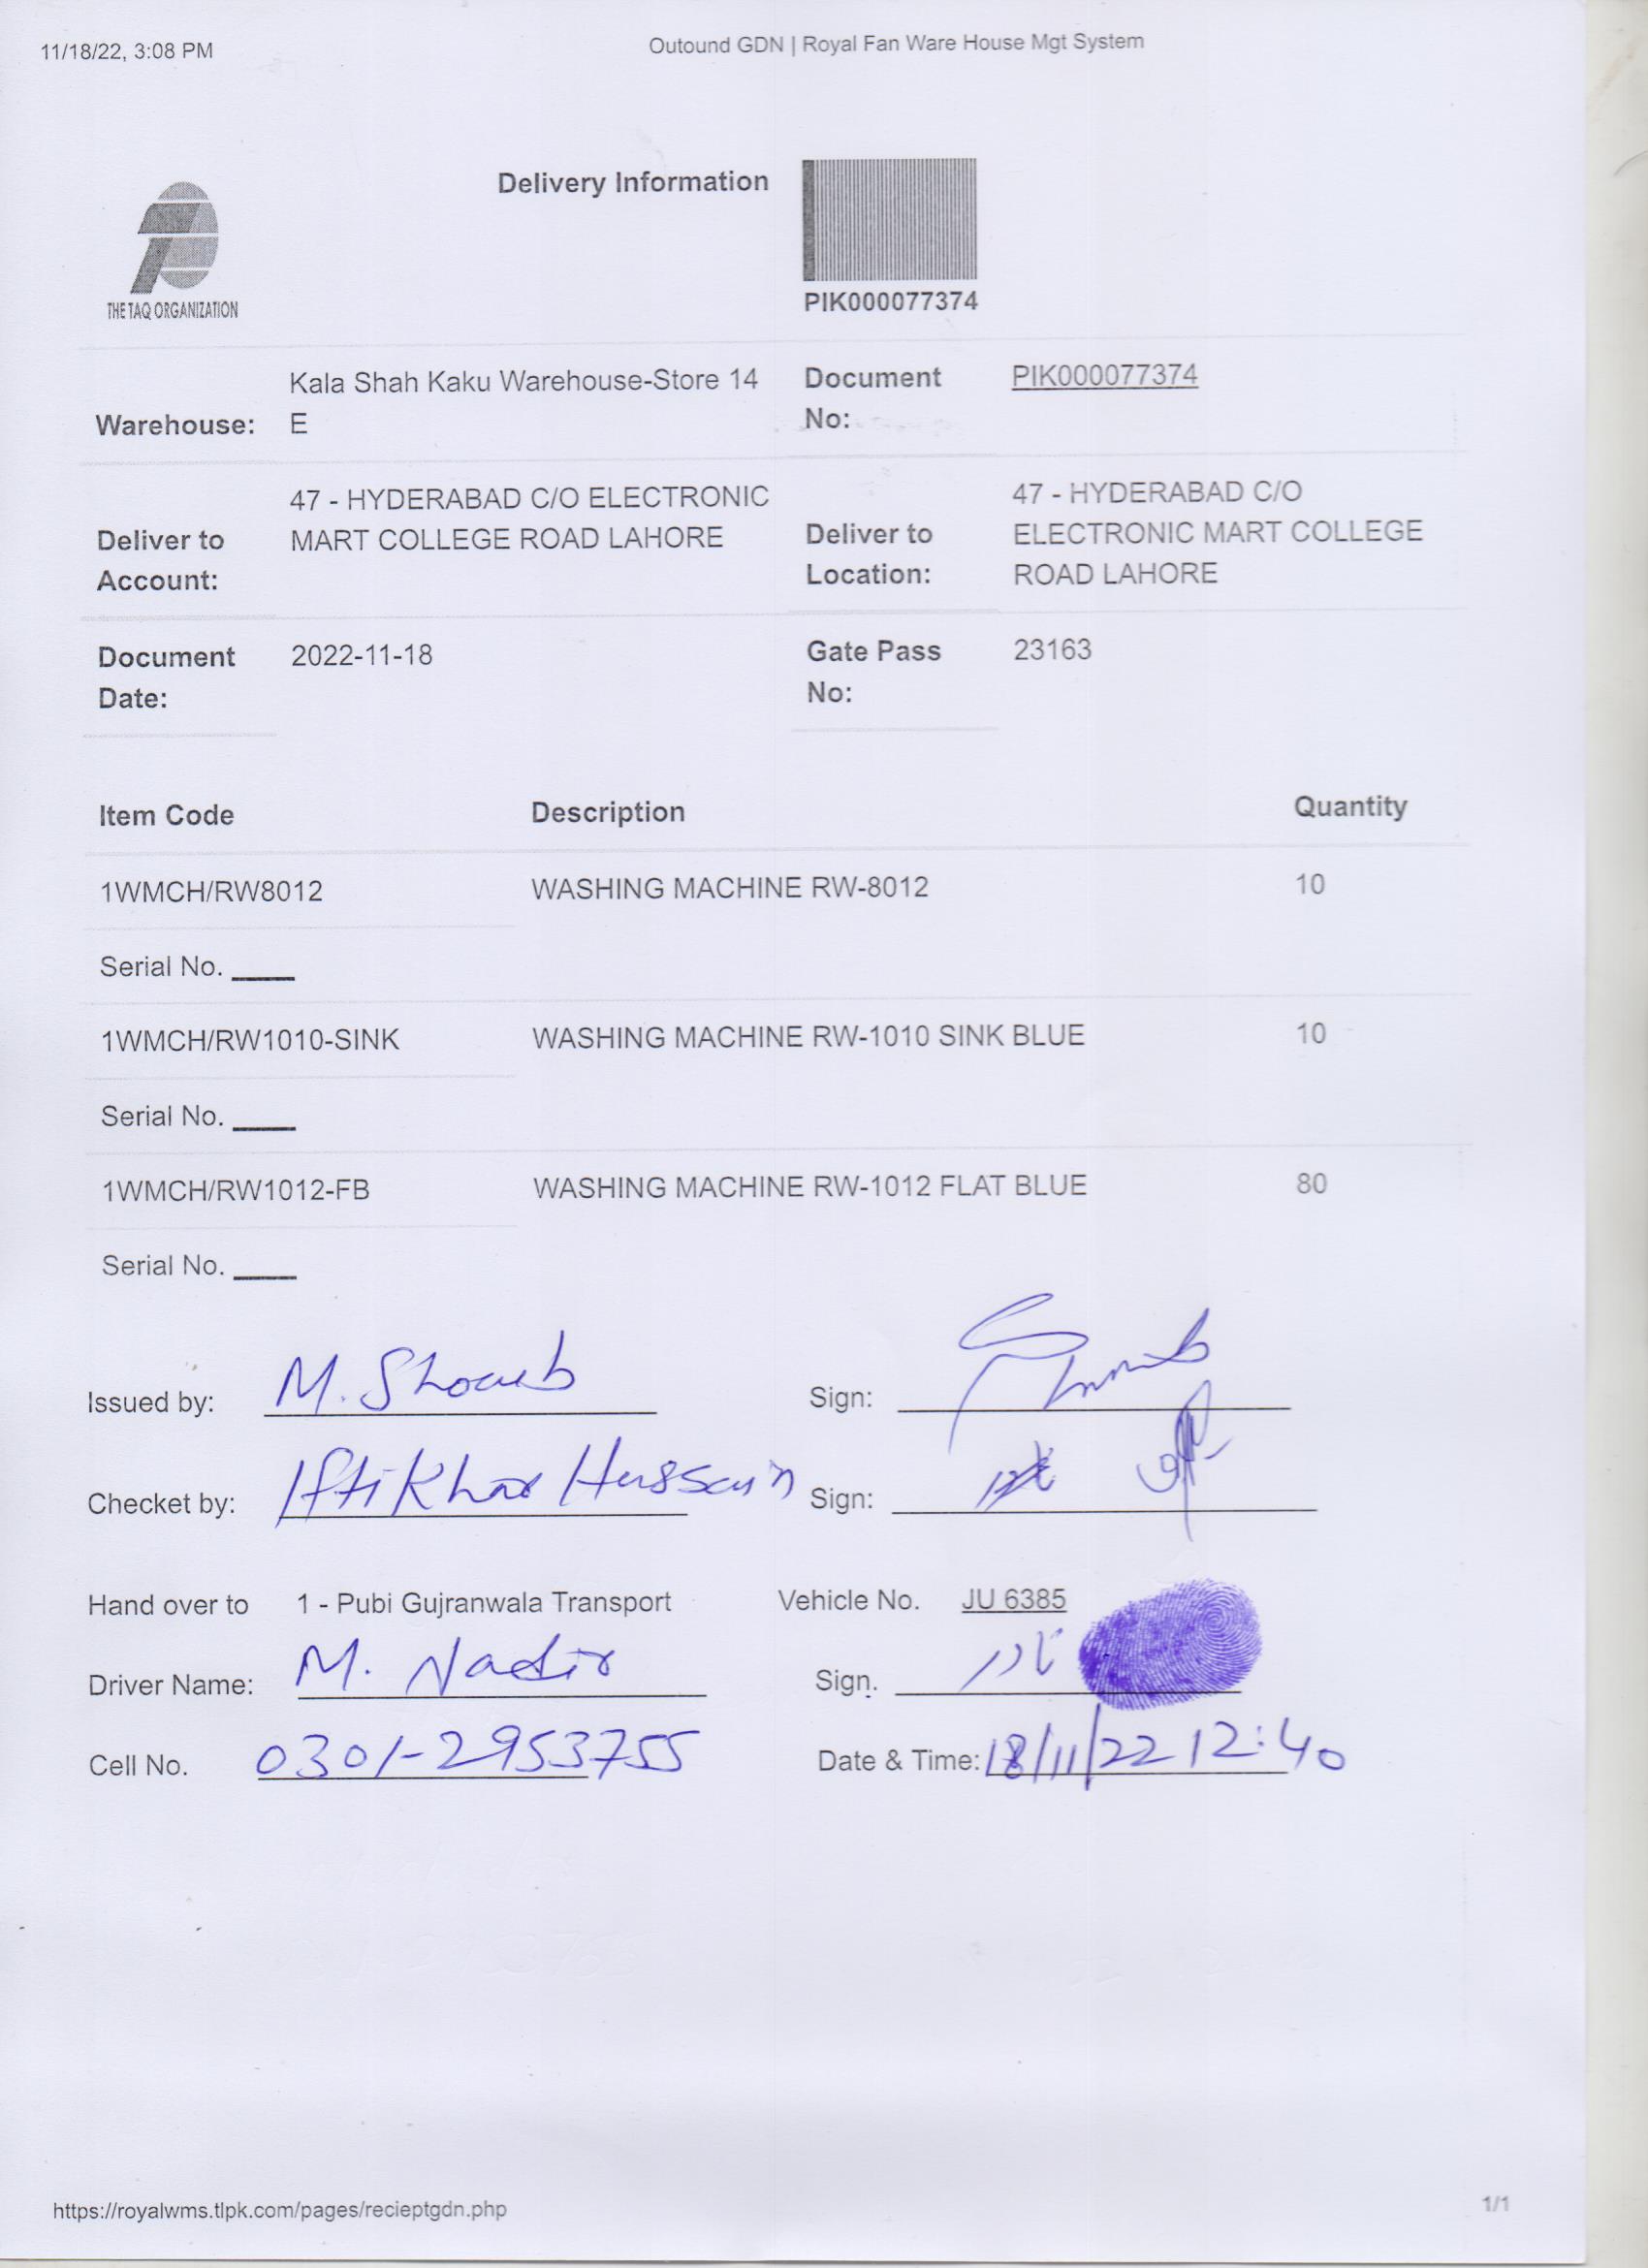 11/18/22, 3:08 PM
Outound GDN | Royal Fan Ware House Mgt System
Delivery Information
THE TAQ ORGANIZATION
PIK000077374
Warehouse: Kala Shah Kaku Warehouse-Store 14 E
Document No: PIK000077374
Deliver to Account: 47 - HYDERABAD C/O ELECTRONIC MART COLLEGE ROAD LAHORE
Deliver to Location: 47 - HYDERABAD C/O ELECTRONIC MART COLLEGE ROAD LAHORE
Document Date: 2022-11-18
Gate Pass No: 23163
Item Code Description Quantity
1WMCH/RW8012 WASHING MACHINE RW-8012 10
Serial No. ____
1WMCH/RW1010-SINK WASHING MACHINE RW-1010 SINK BLUE 10
Serial No. ____
1WMCH/RW1012-FB WASHING MACHINE RW-1012 FLAT BLUE 80
Serial No. ____
Issued by: M. Shoaib Sign:
Checket by: Iftikhar Hussain Sign:
Hand over to 1 - Pubi Gujranwala Transport Vehicle No. JU 6385
Driver Name: M. Nadir Sign. نادر
Cell No. 0301-2953755 Date & Time: 18/11/22 12:40
https://royalwms.tlpk.com/pages/recieptgdn.php
1/1